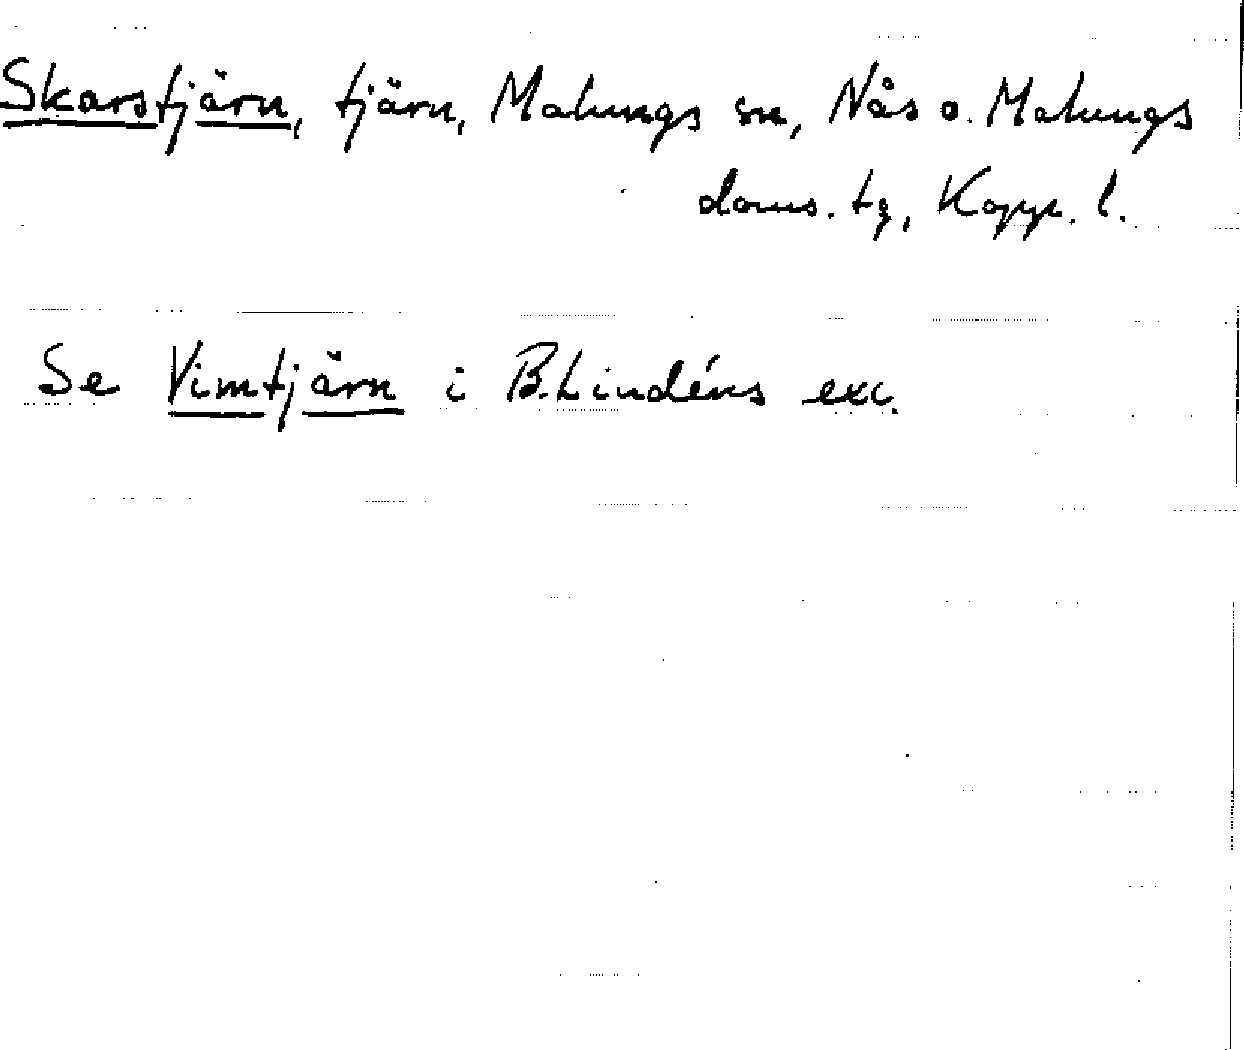 Skarstjärn, tjärn, Malungs sn, Nås o. Malungs
doms. tg, Kopp. l.
Se Vimtjärn i B. Lindéns exc.